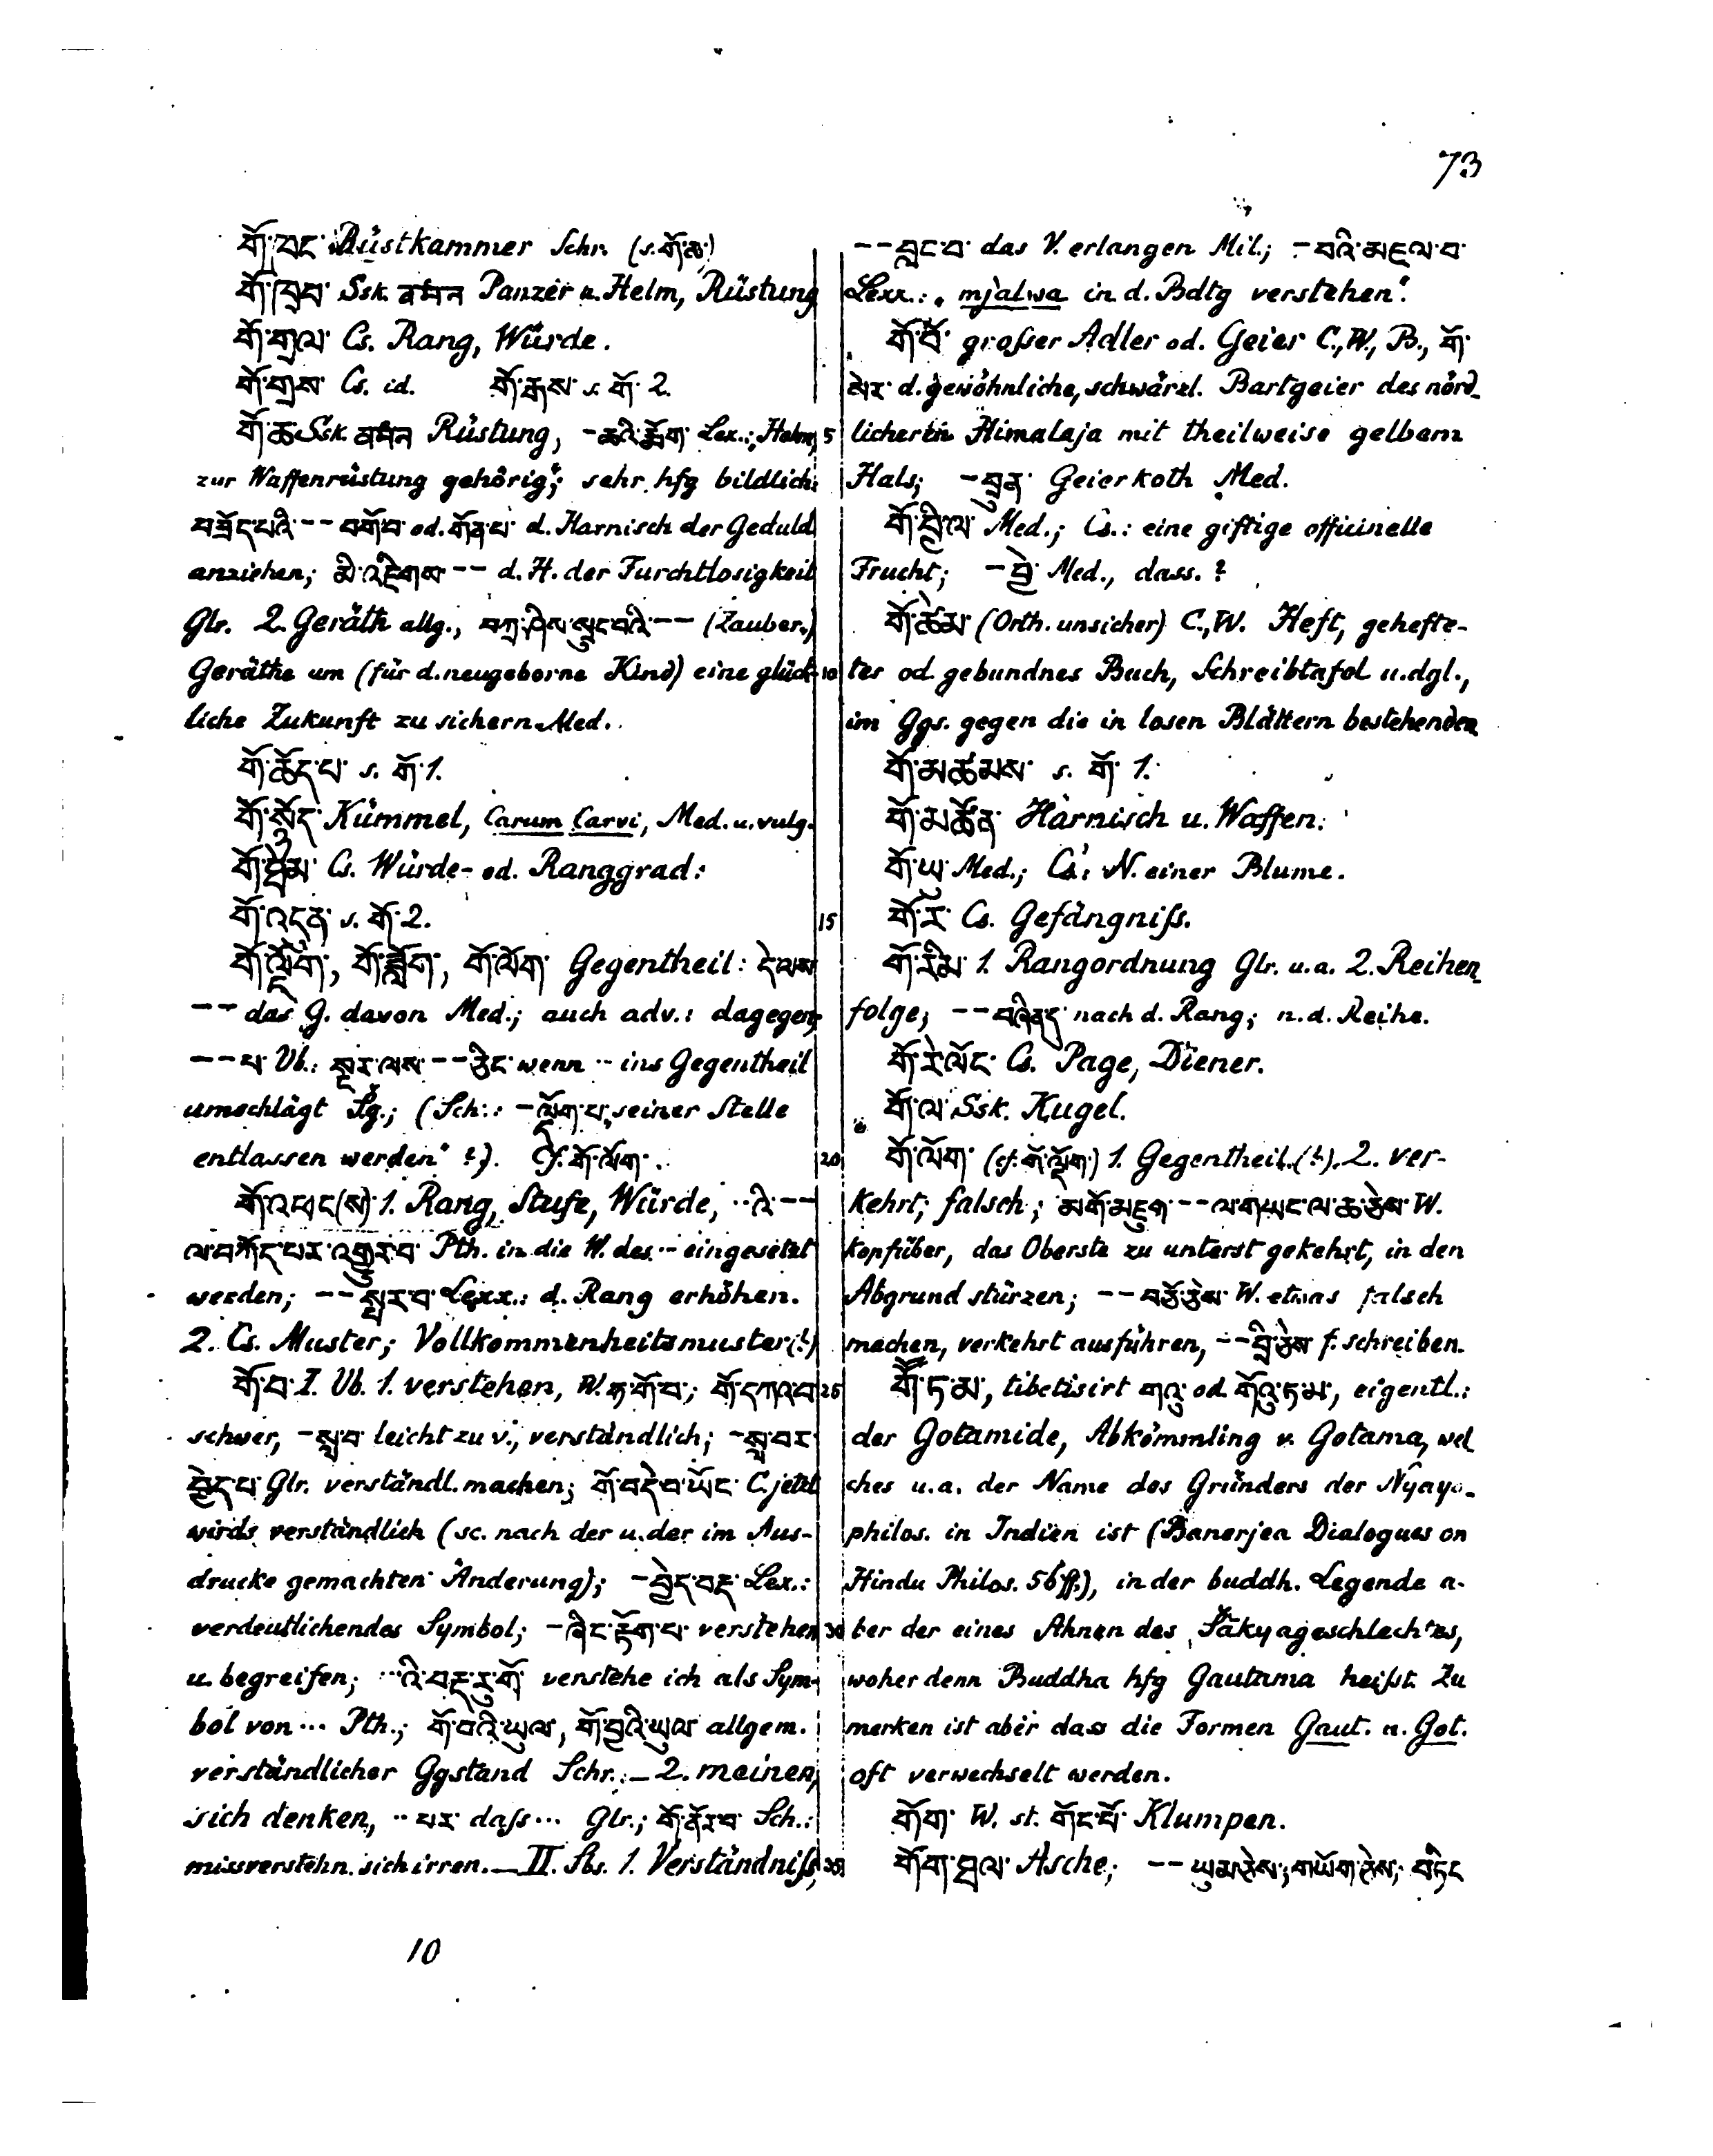 73
གོ་ཁང་ Rüstkammer Schr. (s. གོ་ཆ་)
གོ་ཁྲབ་ Ssk. Panzer u. Helm, Rüstung
གོ་གྲལ་ Cs. Rang, Würde.
གོ་གྲས་ Cs. id. གོ་རྒས་ s. གོ་ 2.
གོ་ཆ Ssk. Rüstung, -ཆའི་རྩོག་ Lex.: „Helm,
zur Waffenrüstung gehörig“; sehr hfg bildlich:
བཟོད་པའི་ -- བགོ་བ་ od. གོན་པ་ d. Harnisch der Geduld
anziehen; མི་འཇིགས་ -- d. H. der Furchtlosigkeit
Glr. 2. Geräth allg., བཀྲ་ཤིས་སྲུང་བའི་ -- (Zauber.)
Geräthe um (für d. neugeborne Kind) eine glück-
liche Zukunft zu sichern Med.
གོ་ཆོད་པ་ s. གོ་ 1.
གོ་སྙོད་ Kümmel, Carum Carvi, Med. u. vulg.
གོ་ཐེམ་ Cs. Würde- od. Ranggrad:
གོ་འདུན་ s. གོ་ 2.
གོ་ལྡོག་, གོ་ཟློག་, གོ་ལོག་ Gegentheil: དེ་ལས་
-- das G. davon Med.; auch adv.: dagegen;
--པ་ Vb.: སྔར་ལས་ -- ཅིང་ wenn ·· ins Gegentheil
umschlägt Sg.; (Sch.: -ལྡོག་པ་ „seiner Stelle
entlassen werden“ ?). Cf. གོ་ལོག་.
གོ་འཕང(ས)་ 1. Rang, Stufe, Würde, ··འི་ --
ལ་བཀོད་པར་འགྱུར་བ་ Pth. in die W. des ·· eingesetzt
werden; -- སྤར་བ་ Lexx.: d. Rang erhöhen.
2. Cs. Muster; Vollkommenheitsmuster (?)
གོ་བ་ I. Vb. 1. verstehen, W. ཧ་གོ་བ་; གོ་དཀའ་བ
schwer, -སླ་བ་ leicht zu v., verständlich; -སླ་བར་
བྱེད་པ་ Glr. verständl. machen; གོ་བདེ་བ་ཡོང་ C. jetzt
wirds verständlich (sc. nach der u. der im Aus-
drucke gemachten Änderung); -བྱེད་བརྡ་ Lex.:
verdeutlichendes Symbol; -ཞིང་རྟོག་པ་ verstehen
u. begreifen; ··འི་བརྡ་རུ་གོ་ verstehe ich als Sym-
bol von ··· Pth.; གོ་བའི་ཡུལ་, གོ་བྱའི་ཡུལ་ allgem.
verständlicher Ggstand Schr.: — 2. meinen,
sich denken, ·· པར་ dass ··· Glr.; གོ་ནོར་བ་ Sch.:
missverstehn. sich irren. — II. Sbs. 1. Verständniß,
10
--བླང་བ་ das V. erlangen Mil.; -བའི་མཇལ་བ་
Lexx.: „mjalwa in d. Bdtg verstehen“.
གོ་བོ་ großer Adler od. Geier C., W., B., གོ་
སེར་ d. gewöhnliche, schwärzl. Bartgeier des nörd-
licheren Himalaja mit theilweise gelbem
Hals; -བྲུན་ Geierkoth Med.
གོ་བྱི་ལ་ Med.; Cs.: eine giftige officinelle
Frucht; -བྱེ་ Med., dass. ?
གོ་ཚེམ་ (Orth. unsicher) C., W. Heft, gehefte-
tes od. gebundnes Buch, Schreibtafel u. dgl.,
im Ggs. gegen die in losen Blättern bestehenden
གོ་མཚམས་ s. གོ་ 1.
གོ་མཚོན་ Harnisch u. Waffen.
གོ་ཡུ་ Med.; Cs.: N. einer Blume.
གོ་ར་ Cs. Gefängniß.
གོ་རིམ་ 1. Rangordnung Glr. u. a. 2. Reihen-
folge; --བཞིན་དུ་ nach d. Rang; n. d. Reihe.
གོ་རེ་ལོང་ Cs. Page, Diener.
གོ་ལ་ Ssk. Kugel.
གོ་ལོག་ (cf. གོ་ལྡོག་) 1. Gegentheil (?). 2. ver-
kehrt; falsch; མགོ་མཇུག་ -- ལ་གཡང་ལ་ཆ་ཅེས་ W.
kopfüber, das Oberste zu unterst gekehrt, in den
Abgrund stürzen; --བཅོ་ཅེས་ W. etwas falsch
machen, verkehrt ausführen, --བྲི་ཅེས་ f. schreiben.
གོཽ་ཏ་མ་, tibetisirt གཽ་ od. གོའུ་ཏ་མ་, eigentl.:
der Gotamide, Abkömmling v. Gotama, wel
ches u. a. der Name des Gründers der Nyaya-
philos. in Indien ist (Banerjea Dialogues on
Hindu Philos. 56 ff.), in der buddh. Legende a-
ber der eines Ahnen des Śākyageschlechtes,
woher denn Buddha hfg Gautama heißt. Zu
merken ist aber dass die Formen Gaut. u. Got.
oft verwechselt werden.
གོག་ W. st. གོང་པོ་ Klumpen.
གོག་ཐལ་ Asche; --ཡུམ་ཅེས་; གཡོག་ཅེས་; བཏིང